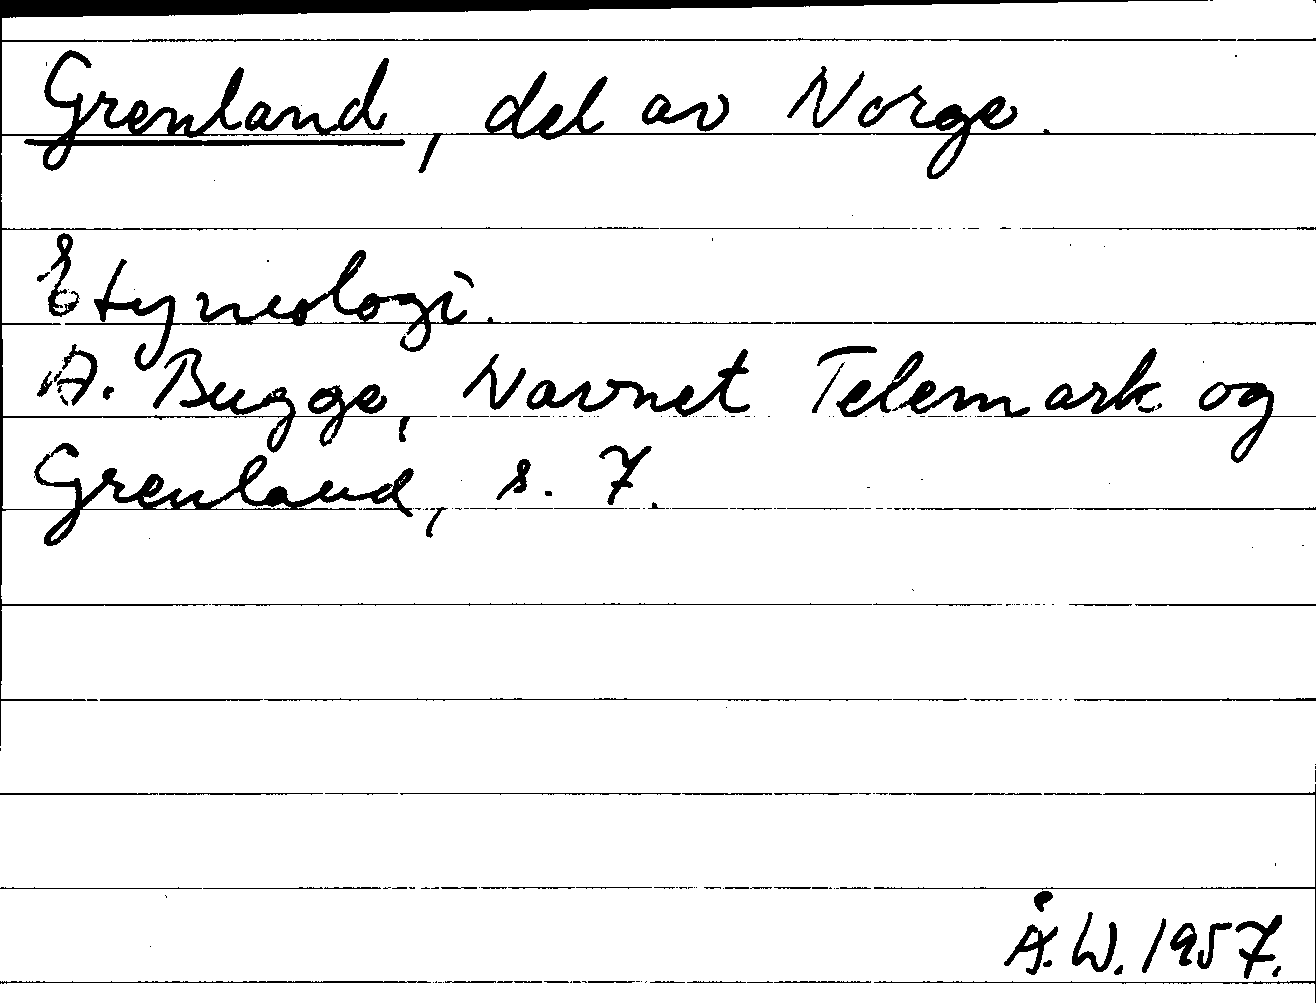 Grenland, del av Norge.
Etymologi.
A. Bugge, Navnet Telemark og
Grenland, s. 7.
Å.W. 1957.